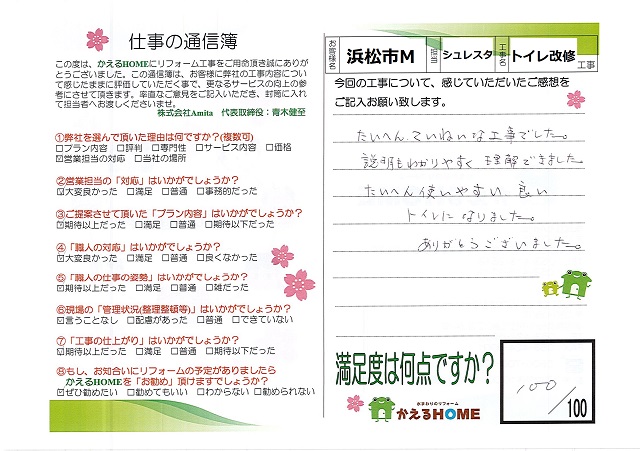 仕事の通信簿
この度は、かえるHOMEにリフォーム工事をご用命頂き誠にありが
とうございました。この通信簿は、お客様に弊社の工事内容につい
て感じたままに評価していただく事で、更なるサービスの向上の参
考にさせて頂きます。率直なご意見をご記入いただき、封筒に入れ
て担当者へお渡しくださいませ。
株式会社Amita 代表取締役：青木健至
①弊社を選んで頂いた理由は何ですか?(複数可)
□プラン内容 □評判 □専門性 □サービス内容 □価格
☑営業担当の対応 □当社の場所
②営業担当の「対応」はいかがでしょうか？
☑大変良かった □満足 □普通 □事務的だった
③ご提案させて頂いた「プラン内容」はいかがでしょうか？
☑期待以上だった □満足 □普通 □期待以下だった
④「職人の対応」はいかがでしょうか？
☑大変良かった □満足 □普通 □良くなかった
⑤「職人の仕事の姿勢」はいかがでしょうか？
☑期待以上だった □満足 □普通 □雑だった
⑥現場の「管理状況(整理整頓等)」はいかがでしょうか？
☑言うことなし □配慮があった □普通 □できていない
⑦「工事の仕上がり」はいかがでしょうか？
☑期待以上だった □満足 □普通 □期待以下だった
⑧もし、お知合いにリフォームの予定がありましたら
かえるHOMEを「お勧め」頂けますでしょうか？
☑ぜひ勧めたい □勧めてもいい □わからない □勧められない
お客様名 浜松市M 担当 シュレスタ 工事名 トイレ改修 工事
今回の工事について、感じていただいたご感想を
ご記入お願い致します。
たいへんていねいな工事でした。
説明もわかりやすく 理解できました
たいへん使いやすい 良い
トイレになりました。
ありがとうございました。
満足度は何点ですか？
100/100
水まわりのリフォーム
かえるHOME